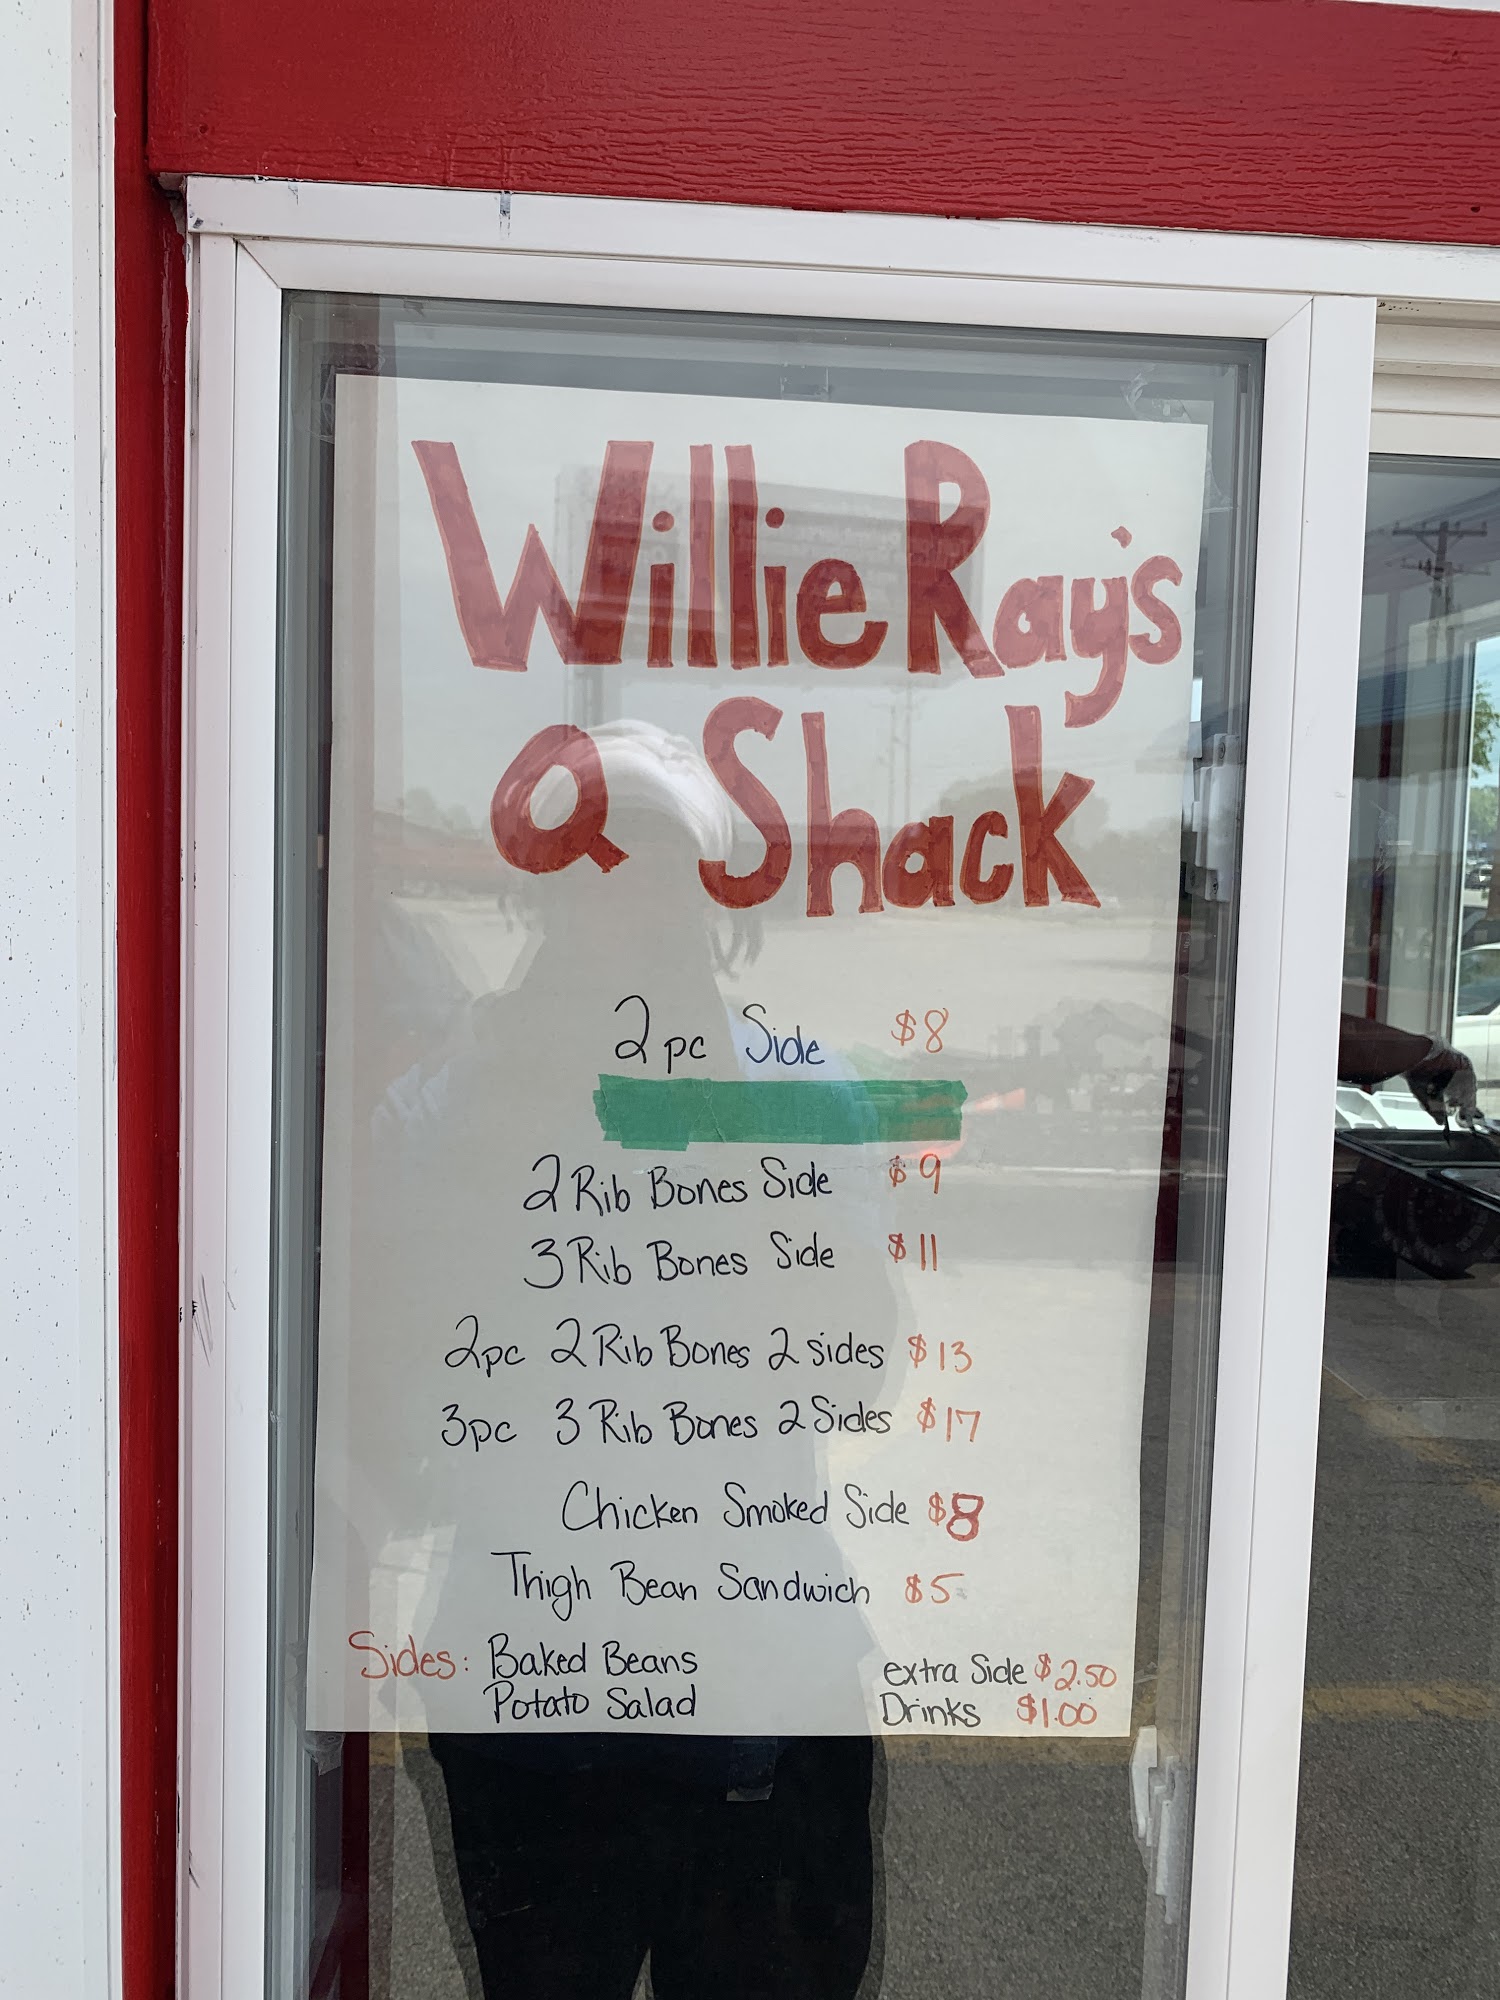 Willie Ray's
Q Shack
2pc Side $8
2 Rib Bones Side $9
3 Rib Bones Side $11
2pc 2 Rib Bones 2 sides $13
3pc 3 Rib Bones 2 Sides $17
Chicken Smoked Side $8
Thigh Bean Sandwich $5
Sides: Baked Beans extra Side $2.50
Potato Salad Drinks $1.00